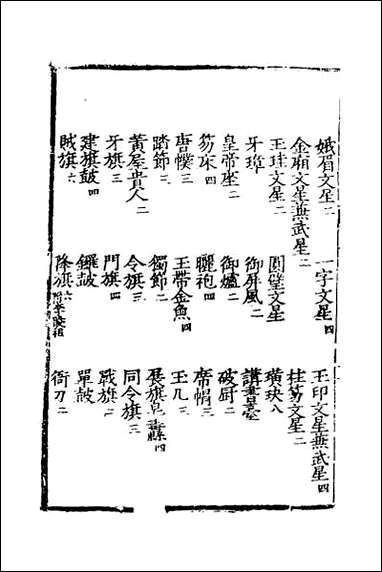 娥眉文星二 一字文星四 玉印文星兼武星四
金廂文星兼武星二 圓璧文星 拄笏文星二
玉珪文星二 御屏風二 璜玦八
牙璋二 御爐二 講書臺
皇帝座二 曬袍四 破廚二
笏床四 玉帶金魚四 席帽三
唐幞三 獨節二 玉几三
踏節三 令旗三 展旗皂纛四
黃屋貴人二 門旗四 同令旗三
牙旗三 鑼鼓 戰旗二
建旗鼓四 降旗六 單鼓
賊旗六 衙刀二